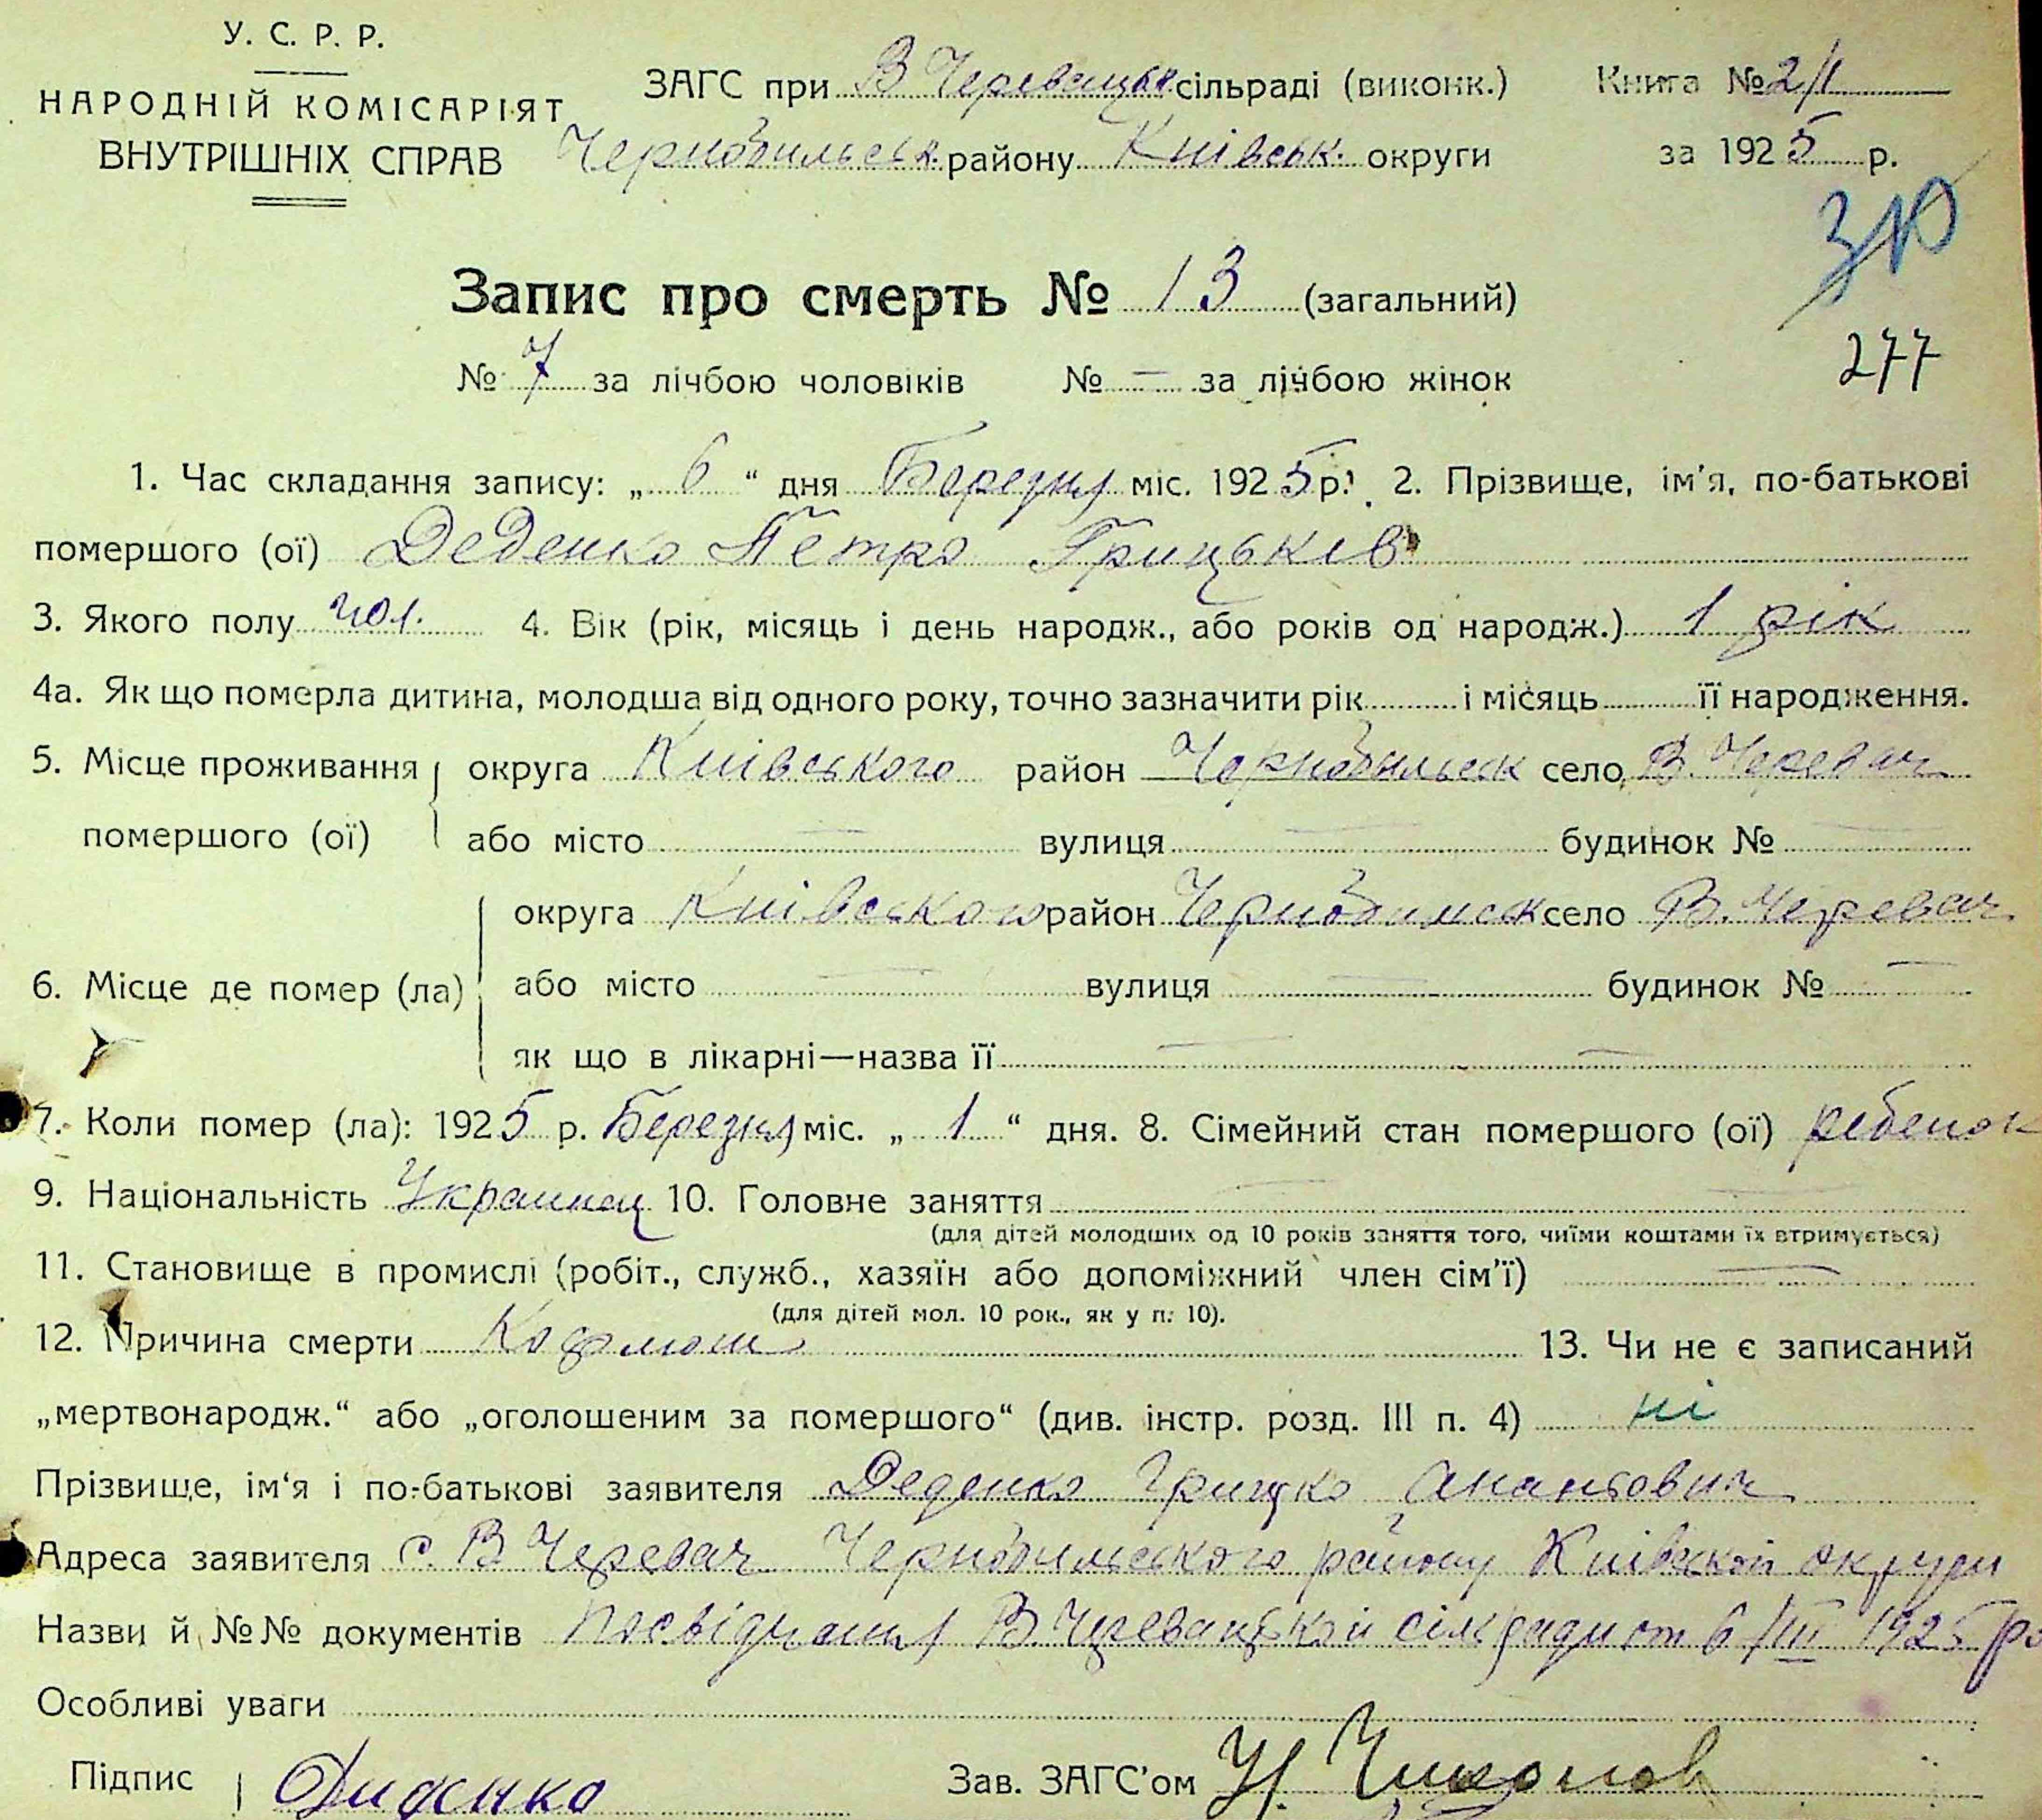 У. С. Р. Р.
НАРОДНІЙ КОМІСАРІЯТ
ВНУТРІШНІХ СПРАВ
ЗАГС при В Черевацьк сільраді (виконк.)
Чернобильськ. району Київськ. округи
Книга № 2/1
за 1925 р.
Запис про смерть № 13 (загальний)
277
№ 7 за лічбою чоловіків № — за лічбою жінок
1. Час складання запису: „ 6 “ дня Березня міс. 1925 р. 2. Прізвище, ім'я, по-батькові
помершого (ої) Деденко Петро Грицьків
3. Якого полу чол. 4. Вік (рік, місяць і день народж., або років од народж.) 1 рік
4а. Як що померла дитина, молодша від одного року, точно зазначити рік і місяць її народження.
5. Місце проживання помершого (ої)
округа Київського район Чернобильськ село В. Черевач
або місто — вулиця — будинок № —
6. Місце де помер (ла)
округа Київського район Чернобильськ село В. Черевач
або місто — вулиця — будинок № —
як що в лікарні—назва її —
7. Коли помер (ла): 1925 р. Березня міс. „ 1 “ дня. 8. Сімейний стан помершого (ої) ребенок
9. Національність Украинец 10. Головне заняття —
(для дітей молодших од 10 років заняття того, чиїми коштами їх втримується)
11. Становище в промислі (робіт., служб., хазяїн або допоміжний член сім'ї) —
(для дітей мол. 10 рок., як у п. 10).
12. Причина смерти 13. Чи не є записаний
„мертвонародж.“ або „оголошеним за помершого“ (див. інстр. розд. III п. 4) ні
Прізвище, ім‘я і по-батькові заявителя Деденко Грицко
Адреса заявителя с. В Черевач Чернобильського району Київской округи
Назви й №№ документів Посвідчання В. Черевацькой сільради от 6/III 1925 р
Особливі уваги
Підпис Диденко Зав. ЗАГС'ом